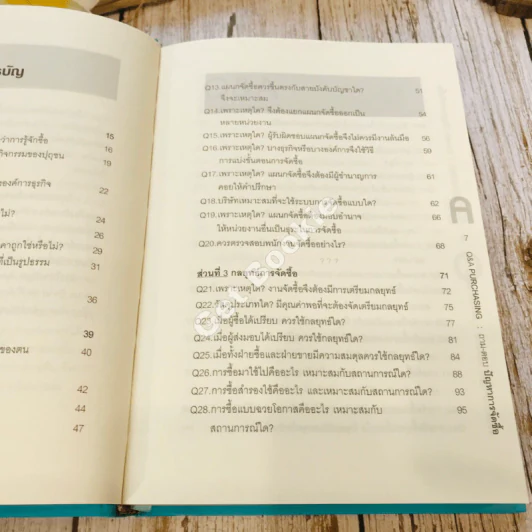 รบัญ
15
ว่าการรู้จักซื้อ 16
กิจกรรมของปุถุชน 19
องค์การธุรกิจ 22
ไม่? 24
26
คาถูกใช่หรือไม่? 29
ที่เป็นรูปธรรม 31
36
39
ของตน 40
42
44
47
Q13.แผนกจัดซื้อควรขึ้นตรงกับสายบังคับบัญชาใด? 51
จึงจะเหมาะสม
Q14.เพราะเหตุใด? จึงต้องแยกแผนกจัดซื้อออกเป็น 54
หลายหน่วยงาน
Q15.เพราะเหตุใด? ผู้รับผิดชอบแผนกจัดซื้อจึงไม่ควรมีงานล้นมือ 56
Q16.เพราะเหตุใด? บางธุรกิจหรือบางองค์การจึงใช้วิธี 59
การแบ่งขั้นตอนการจัดซื้อ
Q17.เพราะเหตุใด? แผนกจัดซื้อจึงต้องมีผู้ชำนาญการ 61
คอยให้คำปรึกษา
Q18.บริษัทเหมาะสมที่จะใช้ระบบการจัดซื้อแบบใด? 62
Q19.เพราะเหตุใด? แผนกจัดซื้อ มอบอำนาจ 66
ให้หน่วยงานอื่นเป็นธุระในการจัดซื้อ
Q20.ควรตรวจสอบพนักงานจัดซื้ออย่างไร? 68
ส่วนที่ 3 กลยุทธ์การจัดซื้อ 71
Q21.เพราะเหตุใด? งานจัดซื้อจึงต้องมีการเตรียมกลยุทธ์ 72
Q22.วัสดุประเภทใด? มีคุณค่าพอที่จะต้องจัดเตรียมกลยุทธ์ 75
Q23.เมื่อผู้ซื้อได้เปรียบ ควรใช้กลยุทธ์ใด? 77
Q24.เมื่อผู้ส่งมอบได้เปรียบ ควรใช้กลยุทธ์ใด? 81
Q25.เมื่อทั้งฝ่ายซื้อและฝ่ายขายมีความสมดุลควรใช้กลยุทธ์ใด? 84
Q26.การซื้อมาใช้ไปคืออะไร เหมาะสมกับสถานการณ์ใด? 88
Q27.การซื้อสำรองใช้คืออะไร และเหมาะสมกับสถานการณ์ใด? 93
Q28.การซื้อแบบฉวยโอกาสคืออะไร เหมาะสมกับ 95
สถานการณ์ใด?
A
7
Q&A PURCHASING : ถาม-ตอบ ปัญหาการจัดซื้อ